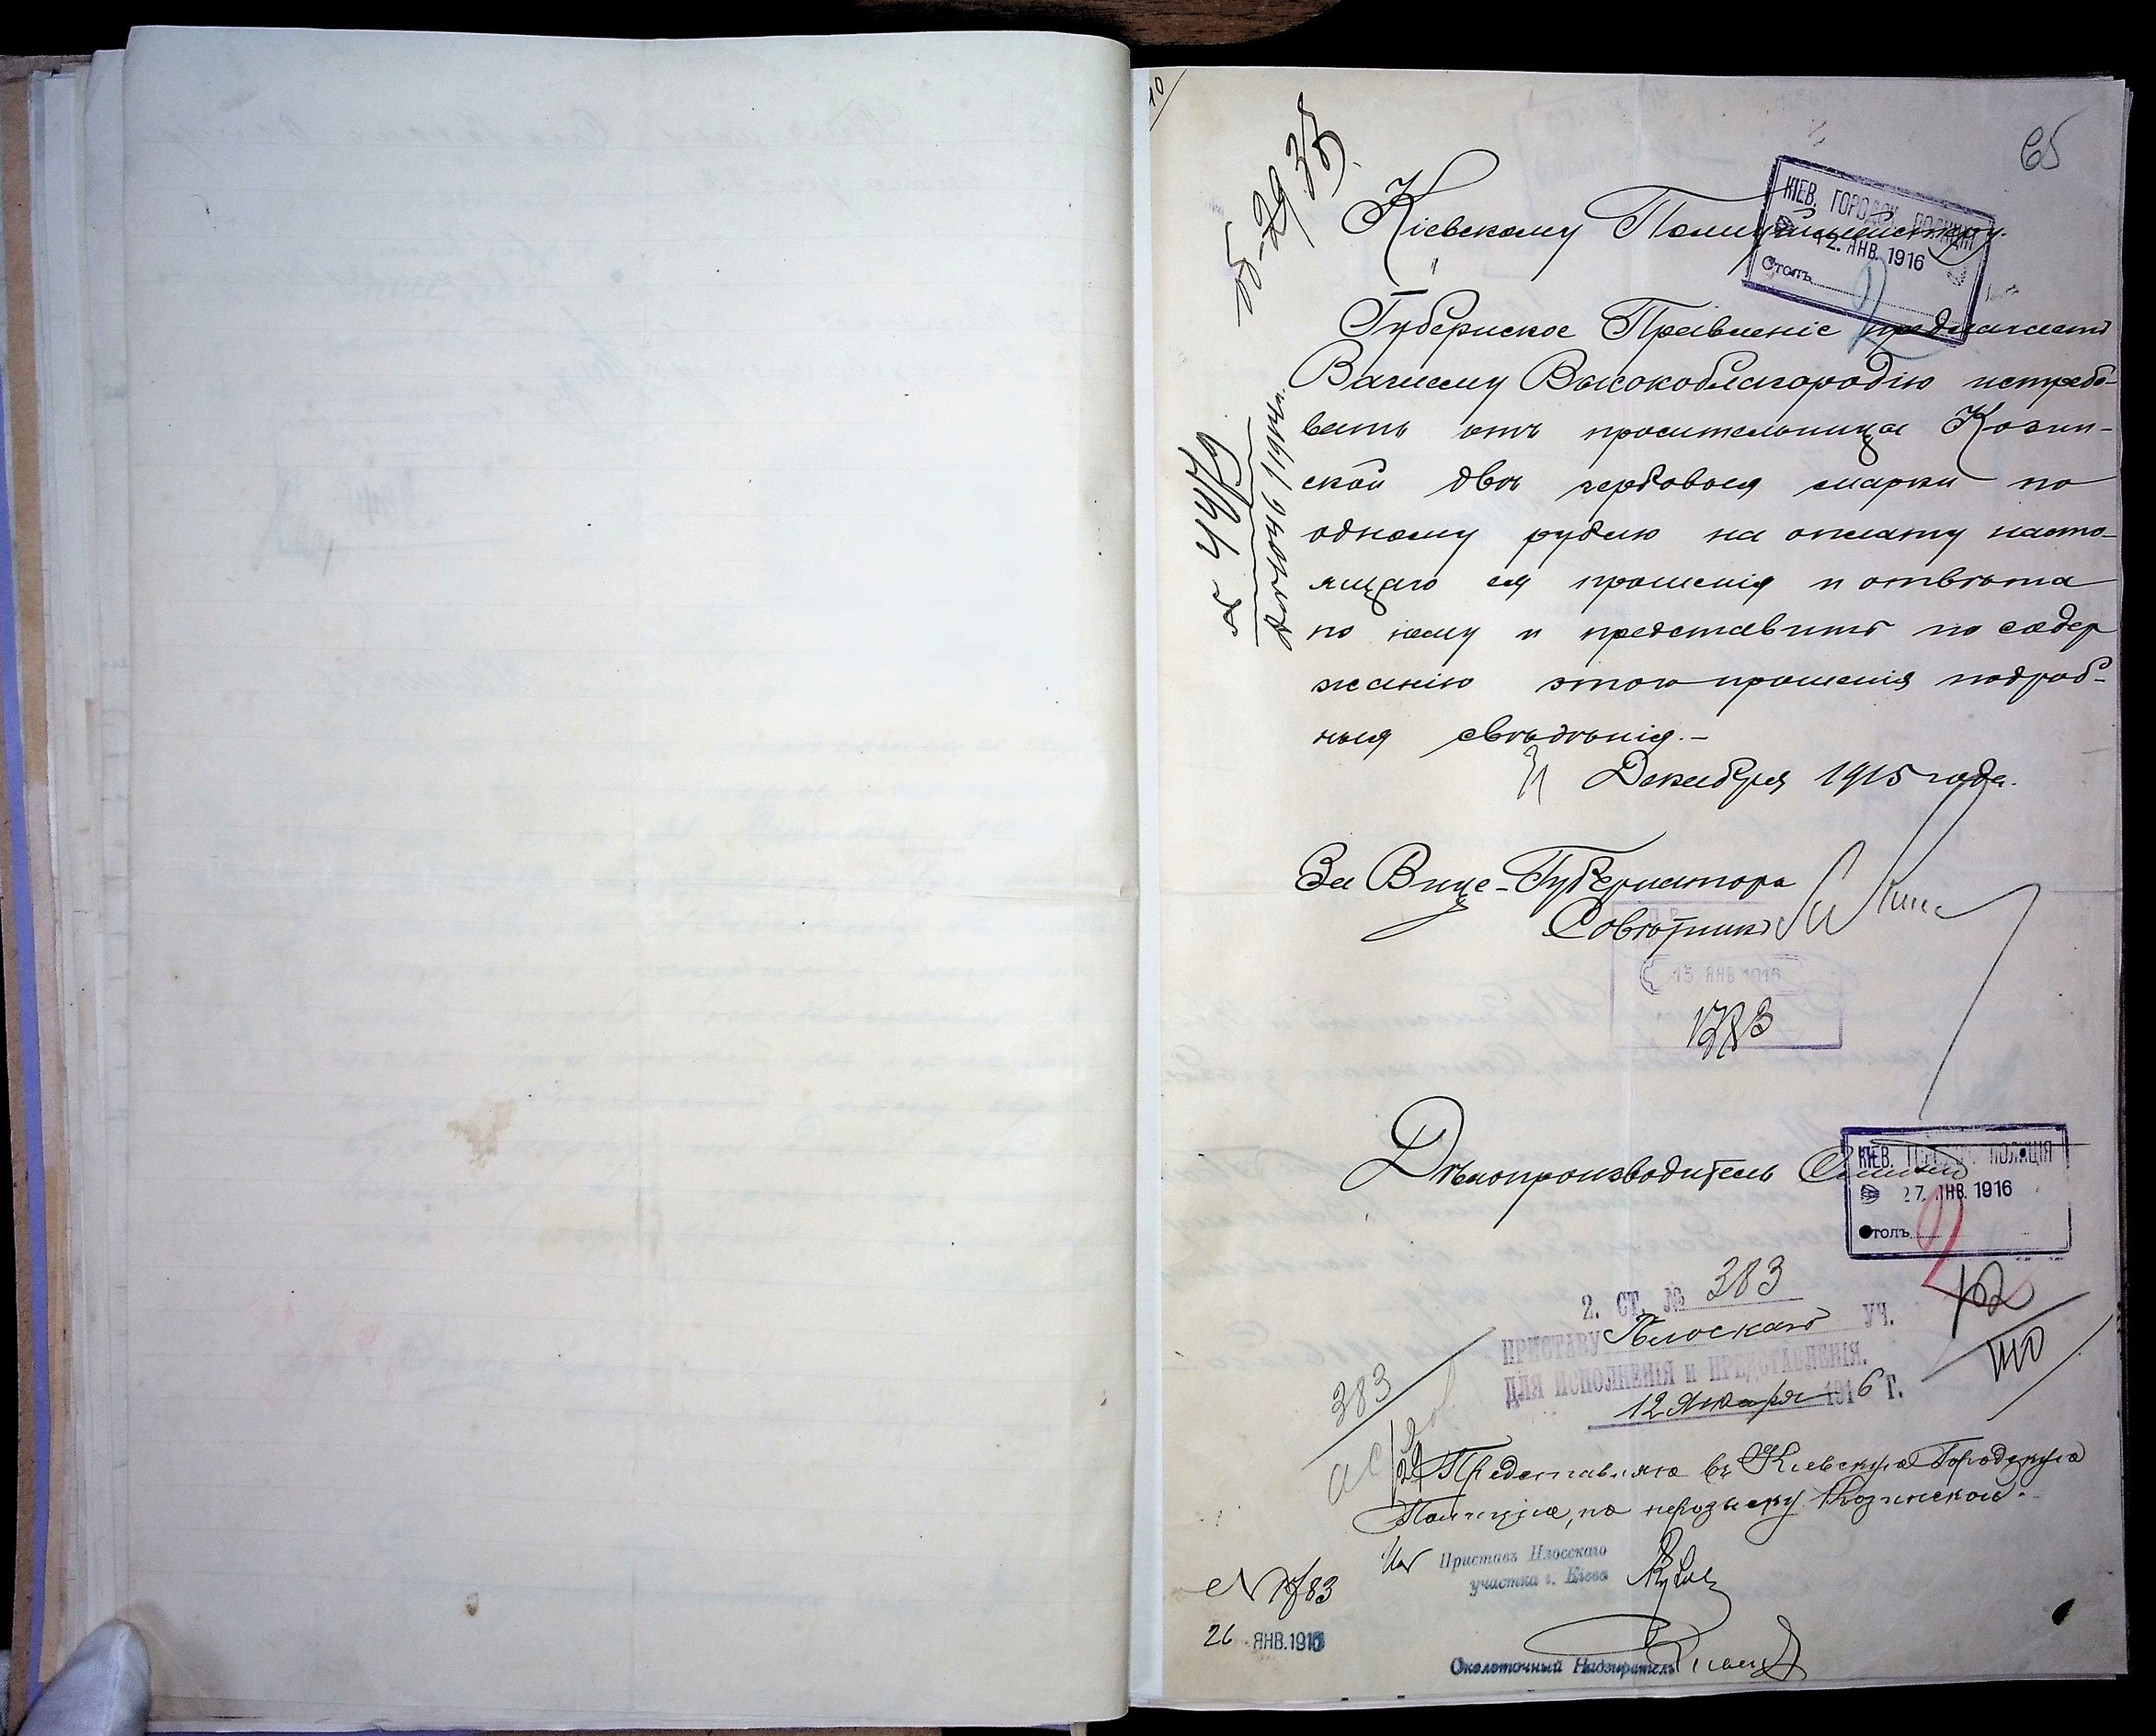 10
65
КІЕВ. ГОРОДСК. ПОЛИЦІЯ
12. ЯНВ. 1916
Столъ
2
Кіевскому Полицiймейстеру.
Губернское Правленіе предлагаетъ
Вашему Высокоблагородію истребо-
вать отъ просительницы Козин-
ской двѣ гербовыя марки по
одному рублю на оплату насто-
ящаго ея прошенія и отвѣта
по нему и представить по содер
жанію этого прошенія подроб-
ныя свѣдѣнія.-
31 Декабря 1915 года.
За Вице-Губернатора
Совѣтникъ
15 ЯНВ 1916
1783
Дѣлопроизводитель
КІЕВ. ГОРОДСК. ПОЛИЦІЯ
27. ЯНВ. 1916
Столъ
2
2. СТ. № 383
ПРИСТАВУ Плоскаго УЧ.
ДЛЯ ИСПОЛНЕНІЯ и ПРЕДСТАВЛЕНІЯ.
12 Января 1916 Г.
383
Представляю въ Кіевскую Городскую
Полицію, по нерозыску Козинской.
Приставъ Плосскаго
участка г. Кіева
N 1783
26 ЯНВ. 1916
Околоточный Надзиратель